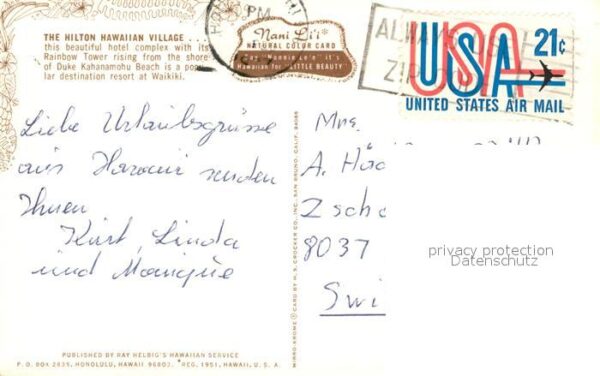 THE HILTON HAWAIIAN VILLAGE . . .
this beautiful hotel complex with its
Rainbow Tower rising from the shore
of Duke Kahanamohu Beach is a popu-
lar destination resort at Waikiki.
PM
Nani Li'i*
NATURAL COLOR CARD
*Say "Nonnie Lee" it's
Hawaiian for "LITTLE BEAUTY"
ALWAYS USE
ZIP
USA 21¢
UNITED STATES AIR MAIL
Liebe Urlaubsgrüsse
aus Hawaii senden
Ihnen
Kurt, Linda
und Monique
MIRRO-KROME ® CARD BY H. S. CROCKER CO., INC. SAN BRUNO, CALIF. 94066
A.
8037
Swi
privacy protection
Datenschutz
PUBLISHED BY RAY HELBIG'S HAWAIIAN SERVICE
P. O. BOX 2835, HONOLULU, HAWAII 96803. *REG. 1951, HAWAII, U. S. A.